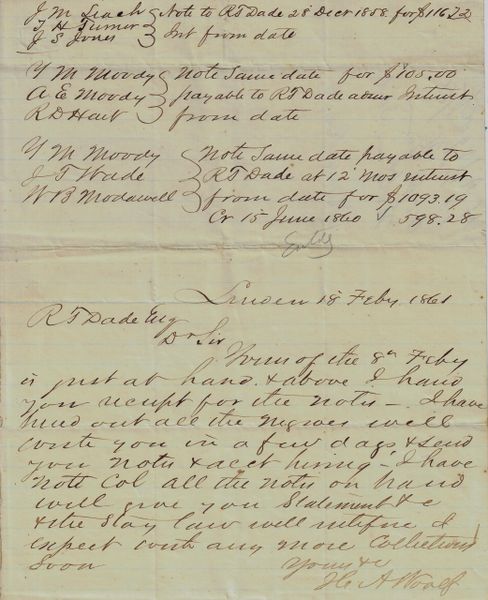 J M Leach } Note to RT Dade 28 Decr 1858. for $116.72
T H Turner } Int from date
J S Jones

Y M Moody } Note Same date for $105.00
A E Moody } payable to RT Dade Interest
R D Hart } from date

Y M Moody } Note Same date payable to
J T Wade } RT Dade at 12 Mos interest
W B Modawell } from date for $1093.19
Cr 15 June 1860 598.28

Linden 18 Feby 1861
RT Dade Esq
Dr Sir
Yours of the 8th Feby
is just at hand. & above I hand
you receipt for the notes – I have
hired out all the Negroes will
write you in a few days & send
you Notes & acct hiring – I have
note Col all the notes on hand
will give you Statement &c
& the Stay law will I
expect any more Collections
Soon Yours &c
A Woolf